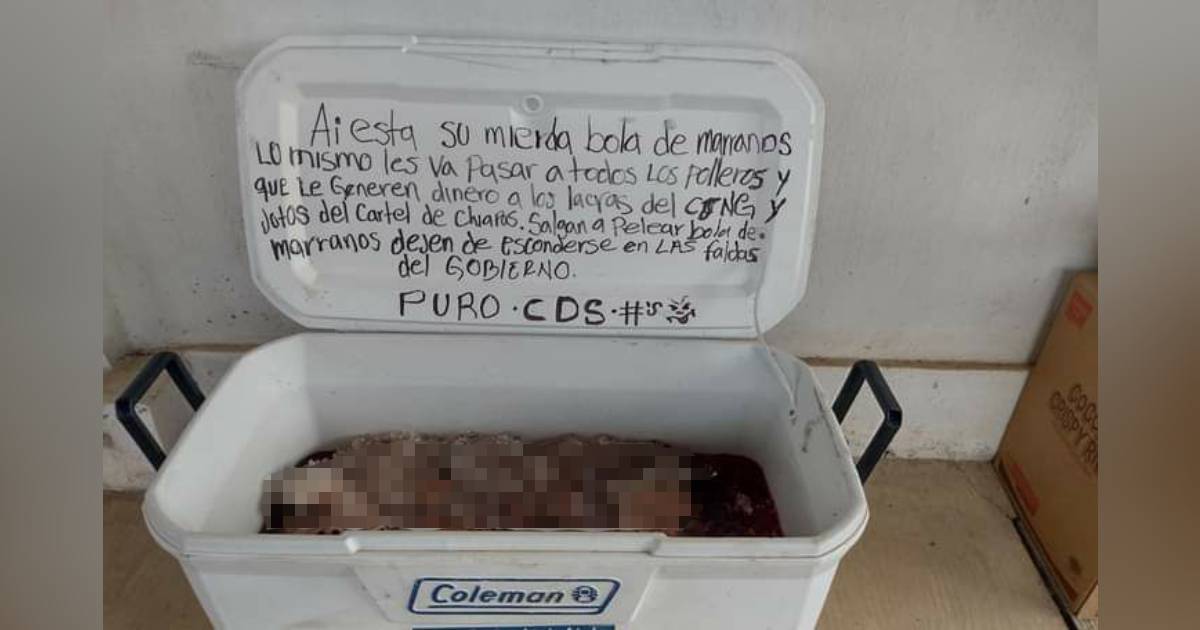 Ai esta su mierda bola de marranos
LO mismo les va Pasar a todos Los Polleros y
que Le Generen dinero a los lacras del CJNG y
Jotos del Cartel de Chiapas. Salgan a Pelear bola de.
marranos dejen de esconderse en LAS faldas
del GOBIERNO.
PURO · CDS · #'s
Coleman
COCO
CRISPY RI